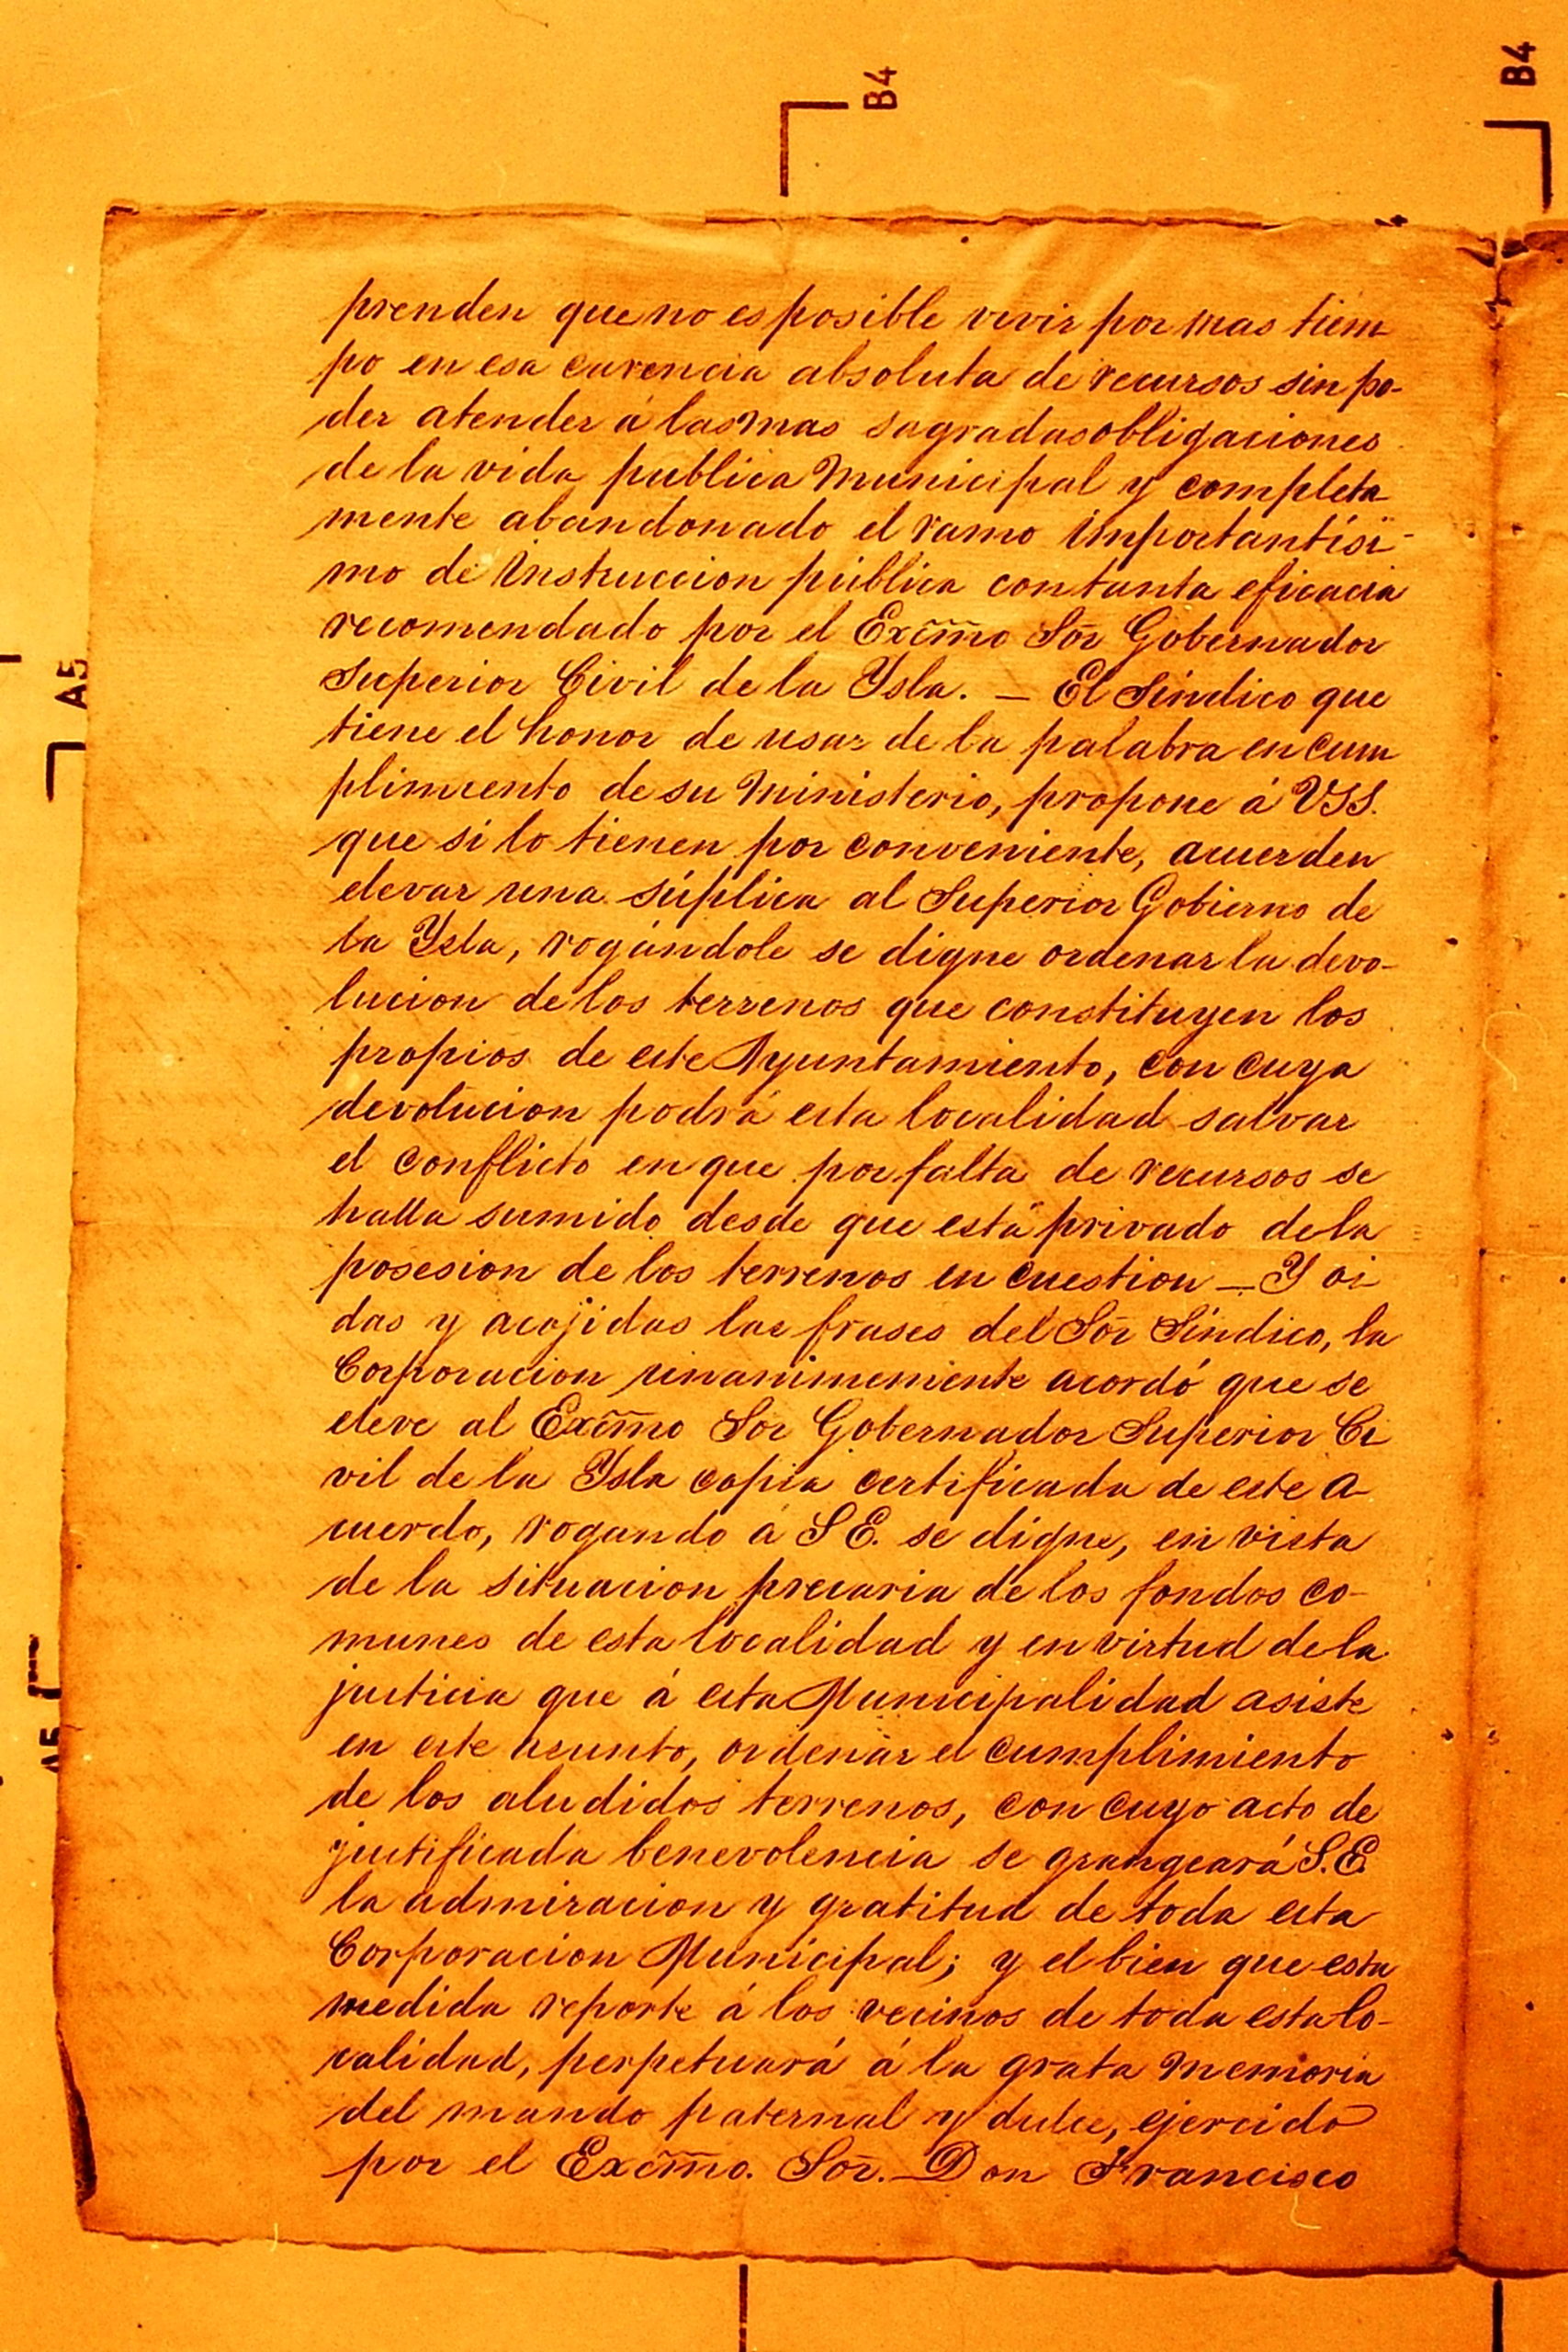 B4
B4
A5
A5
prenden que no es posible vivir por mas tiem
po en esa carencia absoluta de recursos sin po-
der atender á las mas sagradas obligaciones
de la vida publica Municipal y completa
mente abandonado el ramo importantísi-
mo de instruccion pública con tanta eficacia
recomendado por el Excm̃o Sõr Gobernador
Superior Civil de la Ysla. — El Síndico que
tiene el honor de usar de la palabra en cum
plimiento de su Ministerio, propone á VSS.
que si lo tienen por conveniente, acuerden
elevar una súplica al Superior Gobierno de
la Ysla, rogándole se digne ordenar la devo-
lucion de los terrenos que constituyen los
propios de este Ayuntamiento, con cuya
devolucion podrá esta localidad salvar
el conflicto en que por falta de recursos se
halla sumido desde que está privado de la
posesion de los terrenos en cuestion — Y oi
das y acojidas las frases del Sõr Síndico, la
Corporacion unanimemente acordó que se
eleve al Excm̃o Sor Gobernador Superior Ci
vil de la Ysla copia certificada de este a-
cuerdo, rogando á S E. se digne, en vista
de la situacion precaria de los fondos co-
munes de esta localidad y en virtud de la
justicia que á esta Municipalidad asiste
en este asunto, ordenar el cumplimiento
de los aludidos terrenos, con cuyo acto de
justificada benevolencia se grangeará S.E.
la admiracion y gratitud de toda esta
Corporacion Municipal; y el bien que esta
medida reporte á los vecinos de toda esta lo-
calidad, perpetuará á la grata memoria
del mando paternal y dulce, ejercido
por el Excm̃o. Sõr. Don Francisco